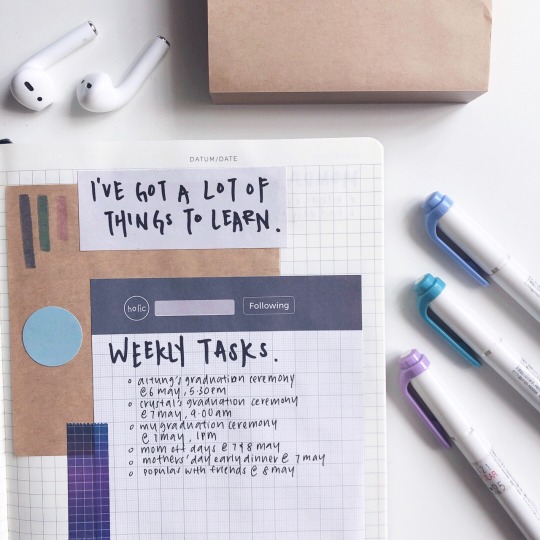 DATUM/DATE
I'VE GOT A LOT OF
THINGS TO LEARN.
holic
Following
WEEKLY TASKS.
graduation ceremony
@ 6 may, 5:30pm
crystal's graduation ceremony
@ 7 may, 9:00am
my graduation ceremony
@ 7 may, 1pm
mom off days @ 7 & 8 may
mothers' day early dinner @ 7 may
popular with friends @ 8 may